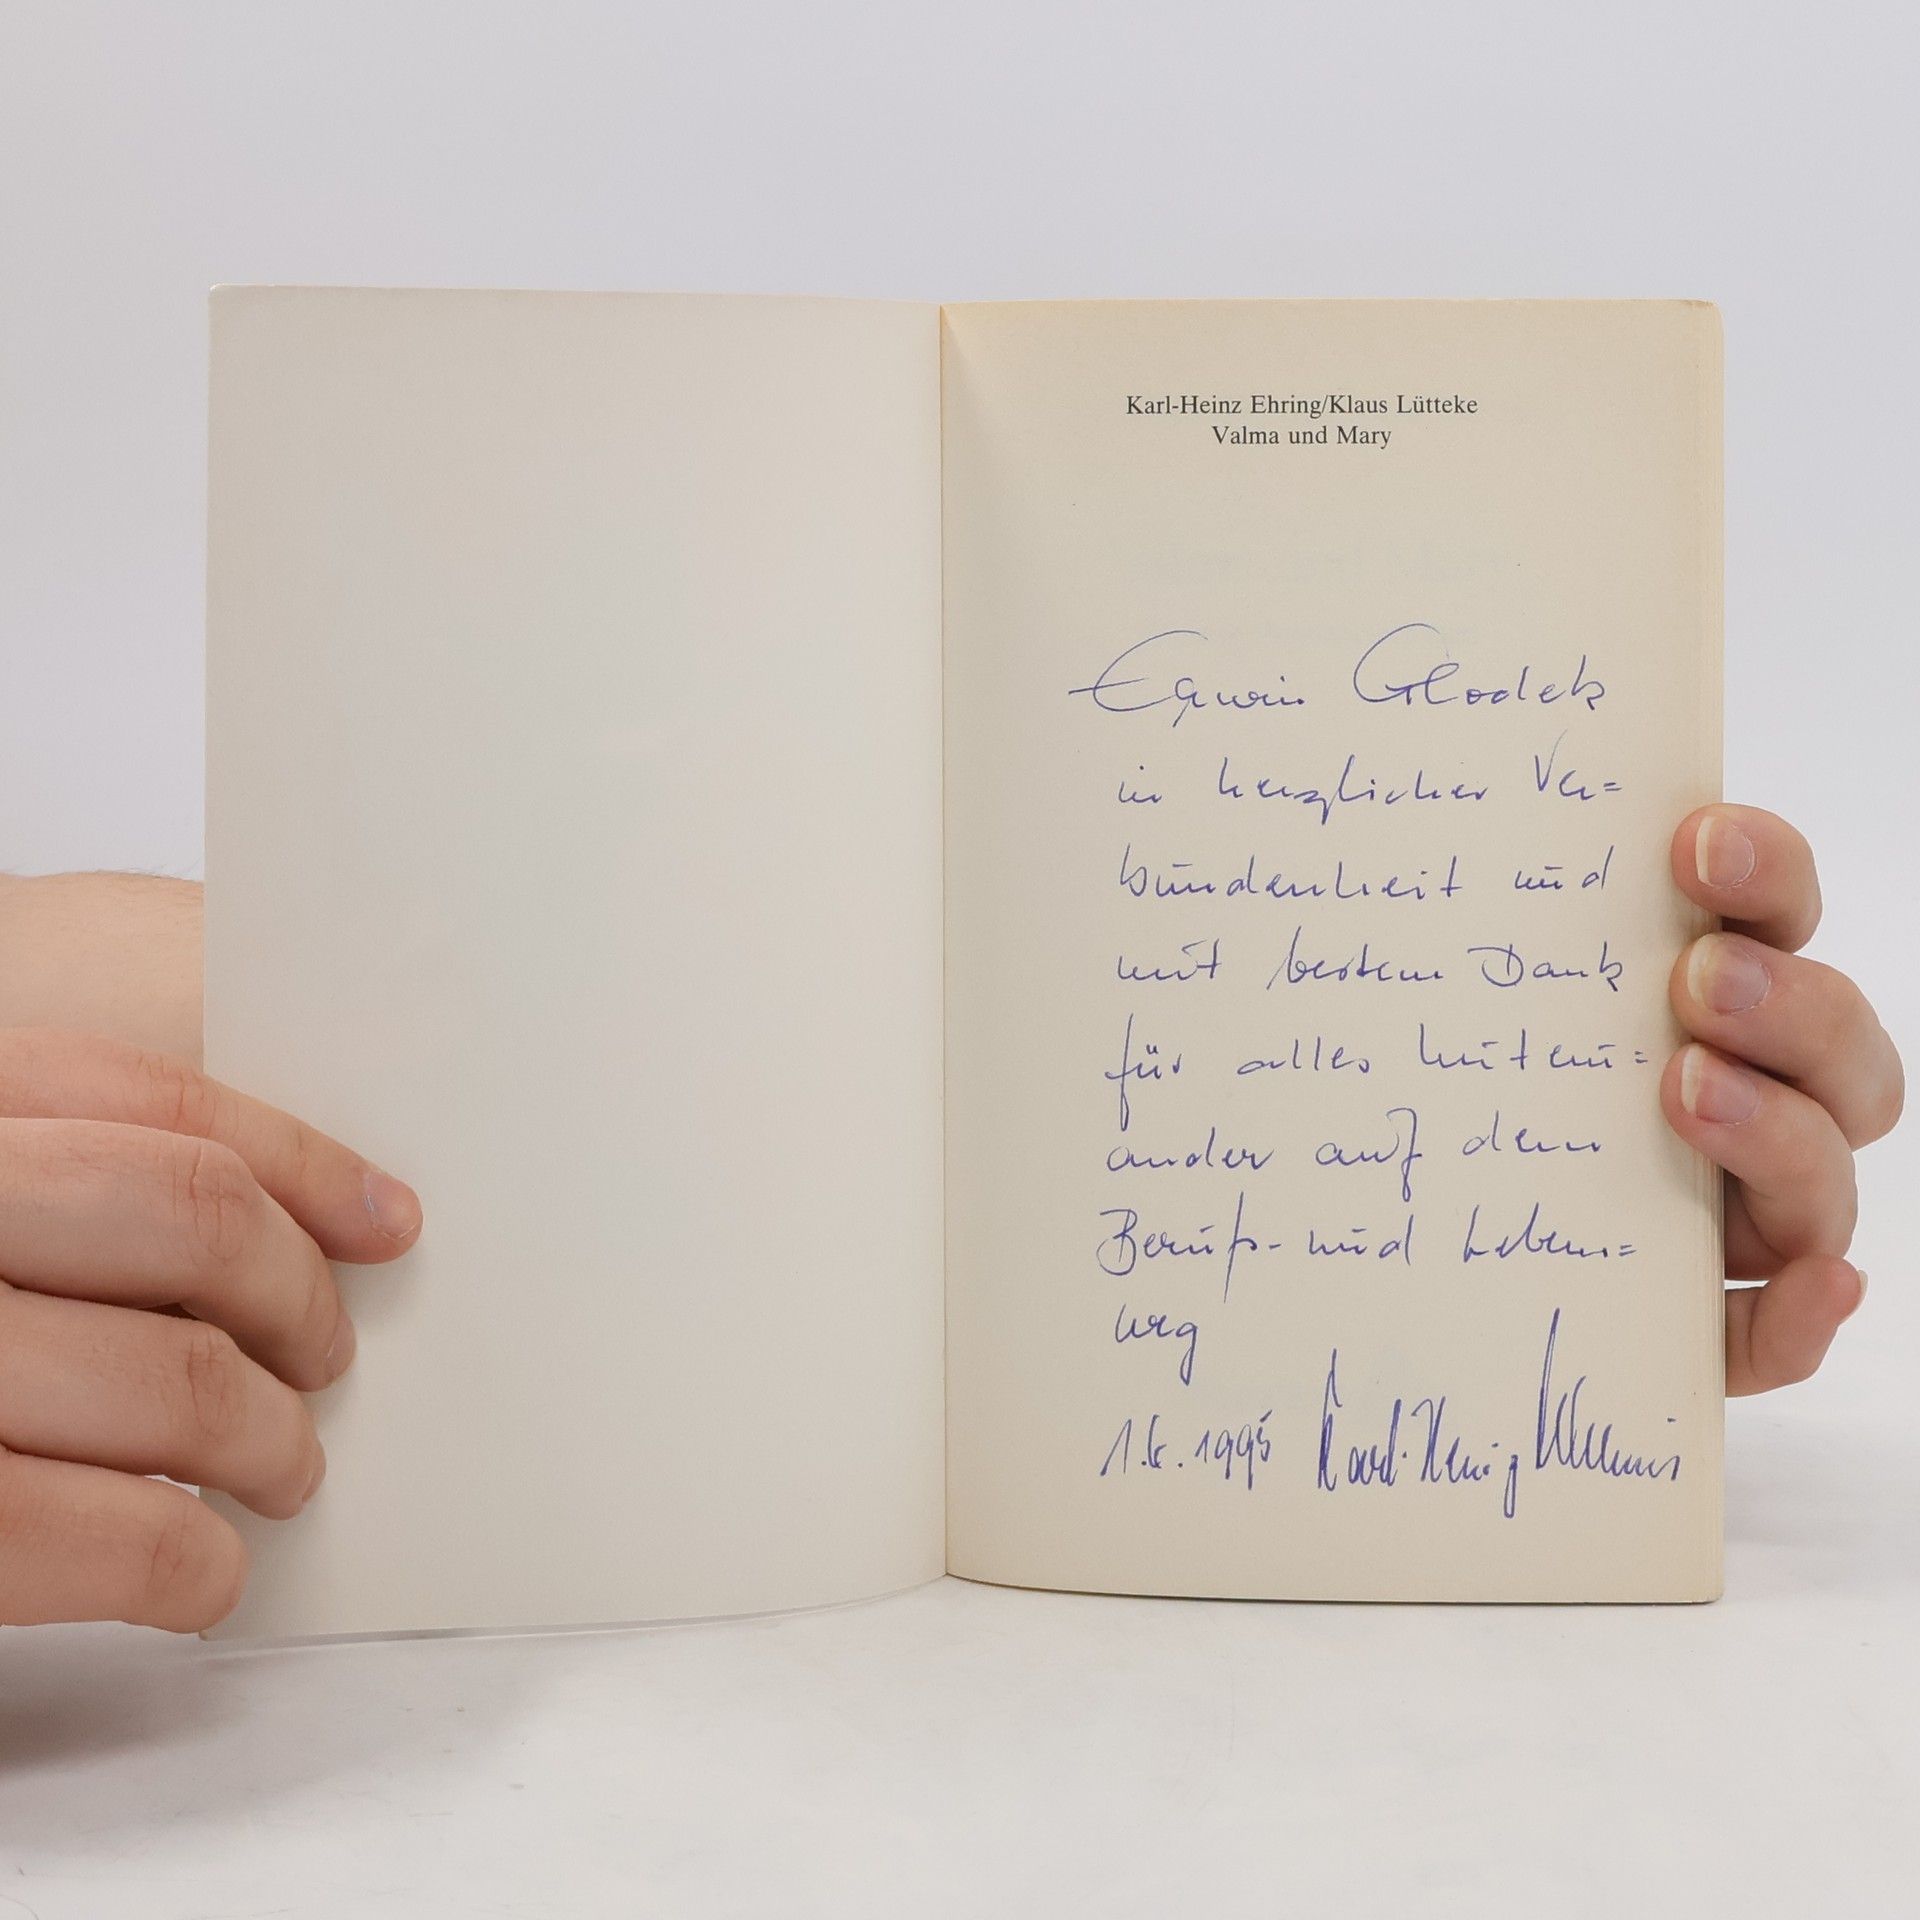 Karl-Heinz Ehring/Klaus Lütteke
Valma und Mary
Erwin Glodek
in herzlicher Ver=
bundenheit und
mit bestem Dank
für alles Mitein=
ander auf dem
Berufs- und Lebens=
weg
1.6.1995 Karl-Heinz